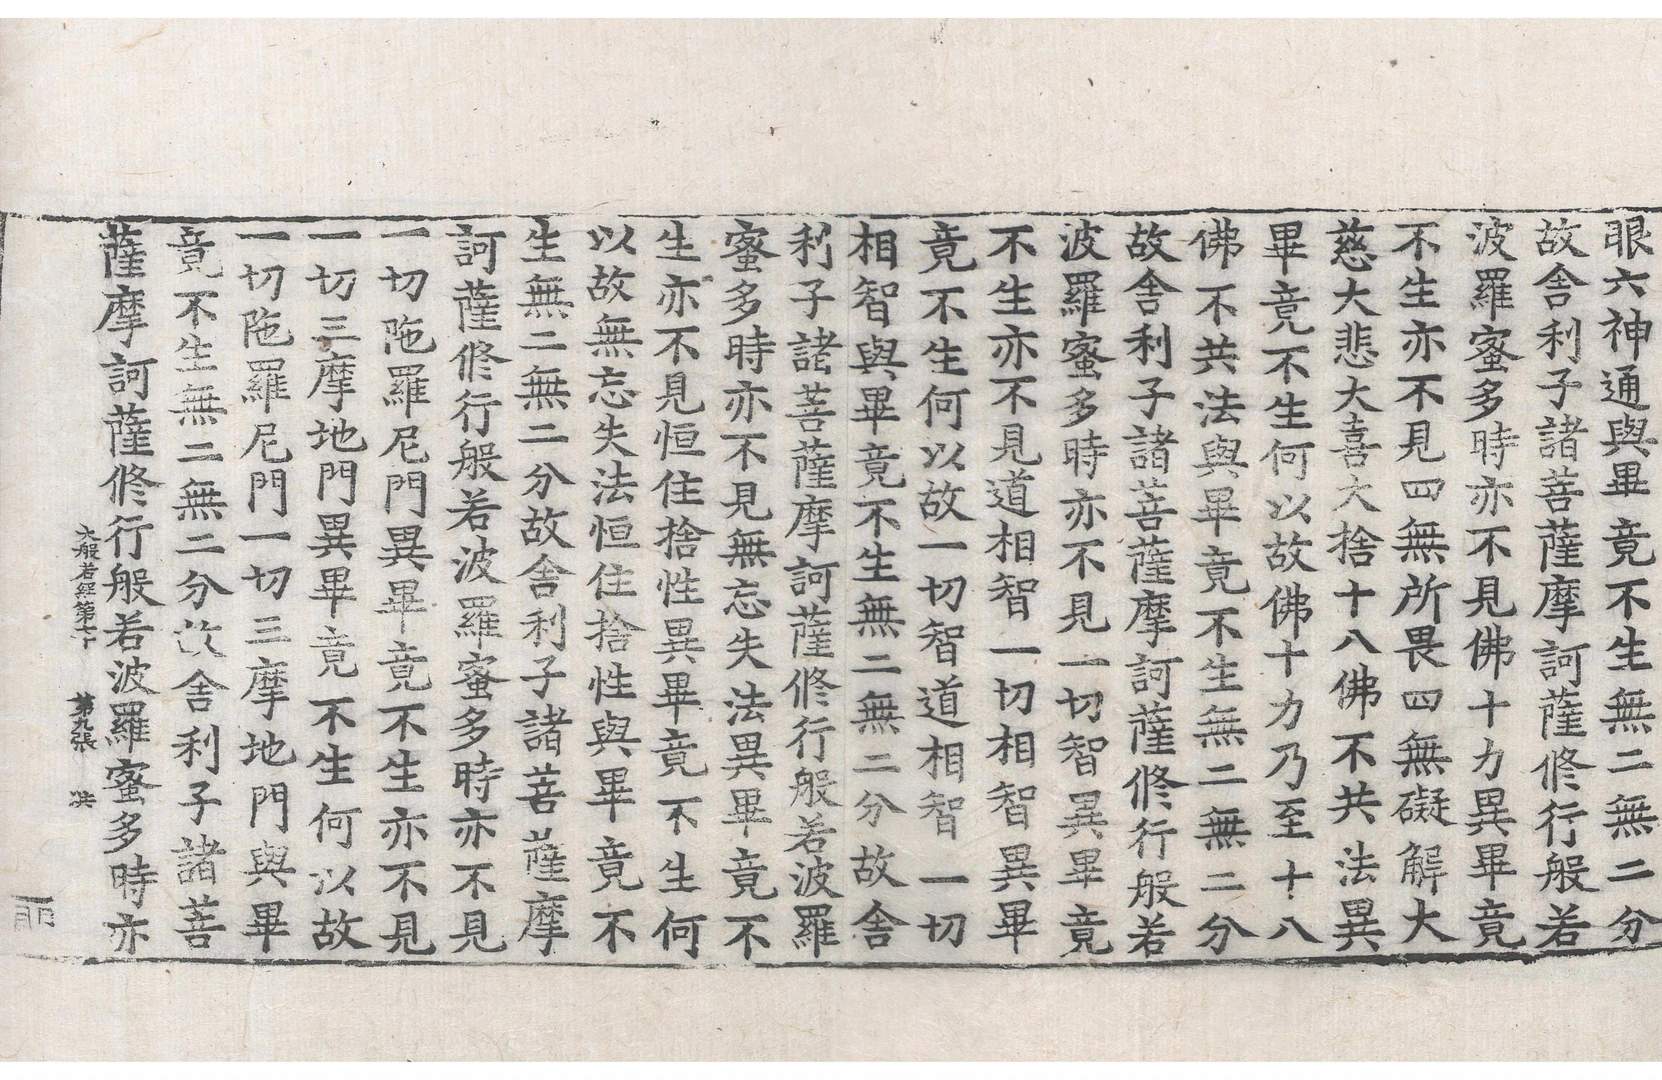 眼六神通與畢竟不生無二無二分
故舍利子諸菩薩摩訶薩修行般若
波羅蜜多時亦不見佛十力異畢竟
不生亦不見四無所畏四無礙解大
慈大悲大喜大捨十八佛不共法異
畢竟不生何以故佛十力乃至十八
佛不共法與畢竟不生無二無二分
故舍利子諸菩薩摩訶薩修行般若
波羅蜜多時亦不見一切智異畢竟
不生亦不見道相智一切相智異畢
竟不生何以故一切智道相智一切
相智與畢竟不生無二無二分故舍
利子諸菩薩摩訶薩修行般若波羅
蜜多時亦不見無忘失法異畢竟不
生亦不見恒住捨性異畢竟不生何
以故無忘失法恒住捨性與畢竟不
生無二無二分故舍利子諸菩薩摩
訶薩修行般若波羅蜜多時亦不見
一切陁羅尼門異畢竟不生亦不見
一切三摩地門異畢竟不生何以故
一切陁羅尼門一切三摩地門與畢
竟不生無二無二分故舍利子諸菩
薩摩訶薩修行般若波羅蜜多時亦
大般若經第七十 第九張 洪